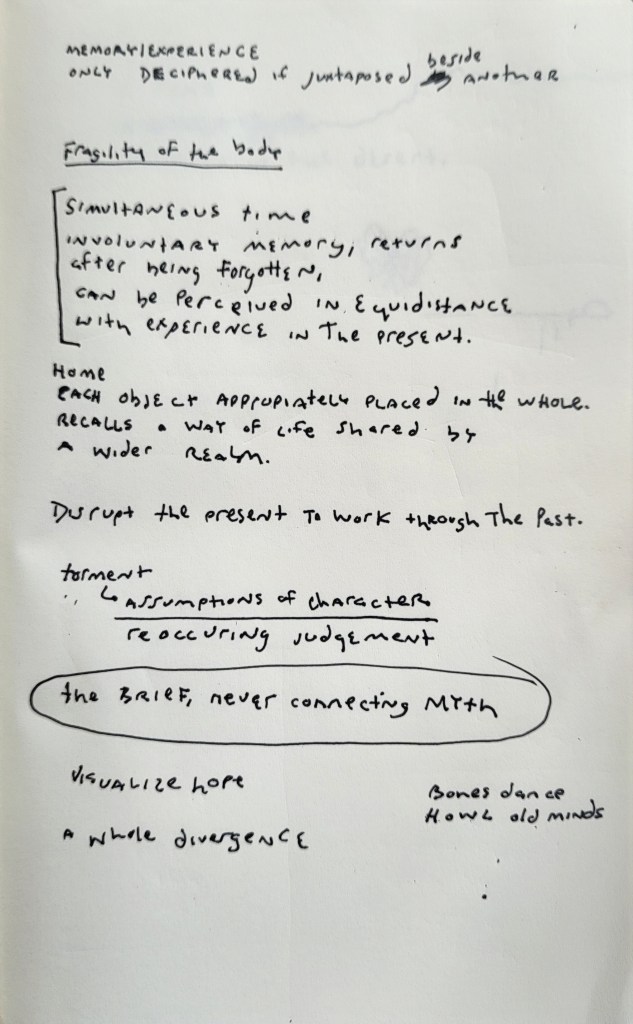 MEMORY/EXPERIENCE
ONLY DECIPHERED if juxtaposed beside ANOTHER
Fragility of the body
SIMULTANEOUS time
INVOLUNTARY MEMORY, returns
after being forgotten,
CAN be PerceIved IN Equidistance
with experience in The present.
Home
EACH object Appropiately placed in the whole.
Recalls a way of life shared by
A wider Realm.
Disrupt the present To work through The Past.
torment
↳ Assumptions of character
reoccuring judgement
the BRIEF, never connecting Myth
Visualize hope
Bones dance
Howl old minds
A whole divergence